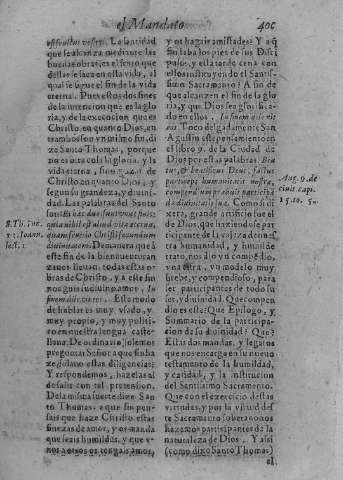 el Mandato.
400
vestrum vestrũ. La santidad
que se alcança mediante las
buenas obras, es el feruo que
dellas se saca en esta vida, al
qual se sigue el fin de la vida
eterna. Pues estos dos fines
de la intencion que es la glo
ria, y de la execucion que es
Christo, en quanto Dios, en
trambos son vn mismo fin, di
ze Santo Thomas, porque
no es otra cosa la gloria, y la
vida eterna, sino gozar de
Christo en quanto Dios, y
segun su grandeza, y diuini
dad. Las palabras del Santo
son:
quia nihil est aliud vita æterna,
quam frui Christo secundum
diuinitatem. De manera que à
este fin de la bienauenturan
zanos lleuan, todas estas o-
bras de Christo, y a este fin
nos guia su diuino amor. In
finem dilexit eos. Este modo
de hablar es muy vsado, y
muy propio, y muy politi-
co en nuestra lengua caste-
llana. De ordinario solemos
preguntar Señor a que fin ha
ze
Y respondemos, hazelas al
desasio con tal pretension.
De la misma suerte dize San
to Thomas: a que fin pen-
sais que haze Christo estas
finezas de amor, y os manda
que seais humildes, y que v-
nos a otros os tengais amor,
y os hagais amistades? Y a q̃
fin laba los pies de sus Disci
pulos, y ella tarde cena con
ellos instituyendo el Santis-
simo Sacramento? A fin de
que alcanzen el fin de la glo
ria, y que Dios sea glorifica-
do en ellos. In finem dilexit
eos. Toco delgadamente San
Agustin este pensamiento en
el libro 9. de la Ciudad de
Dios por estas palabras. Bea
tus, & beatificus Deus, factus
particeps humanitatis nostræ,
compendium præbuit participã
dæ diuinitatis suæ. Como si di
xera, grande artificio fue el
de Dios, que haziendose par
ticipante de la naturaleza de nues-
tra humanidad, y humilde
trato, nos dio vn compẽdio,
vna cifra, vn modelo muy
breue, y compendioso, para
ser participantes de todo su
ser, y diuinidad. Que compen
dio es este? Que Epilogo, y
Summario de la participa-
cion de su diuinidad? Que?
Estas dos mandas, y legatos
que nos encarga en su nueuo
testamento de la humildad,
y caridad, y la institucion
del Santissimo Sacramento.
Que con el exercicio destas
virtudes, y por la virtud des
te Sacramento soberano nos
hazemos participantes de la
naturaleza de Dios. Y assi
(como dixo Santo Thomas)
el
S. Th. Joã.
13. Ioann.
lect. 1
Aug. 9. de
ciuit. cap.
15. to. 5.